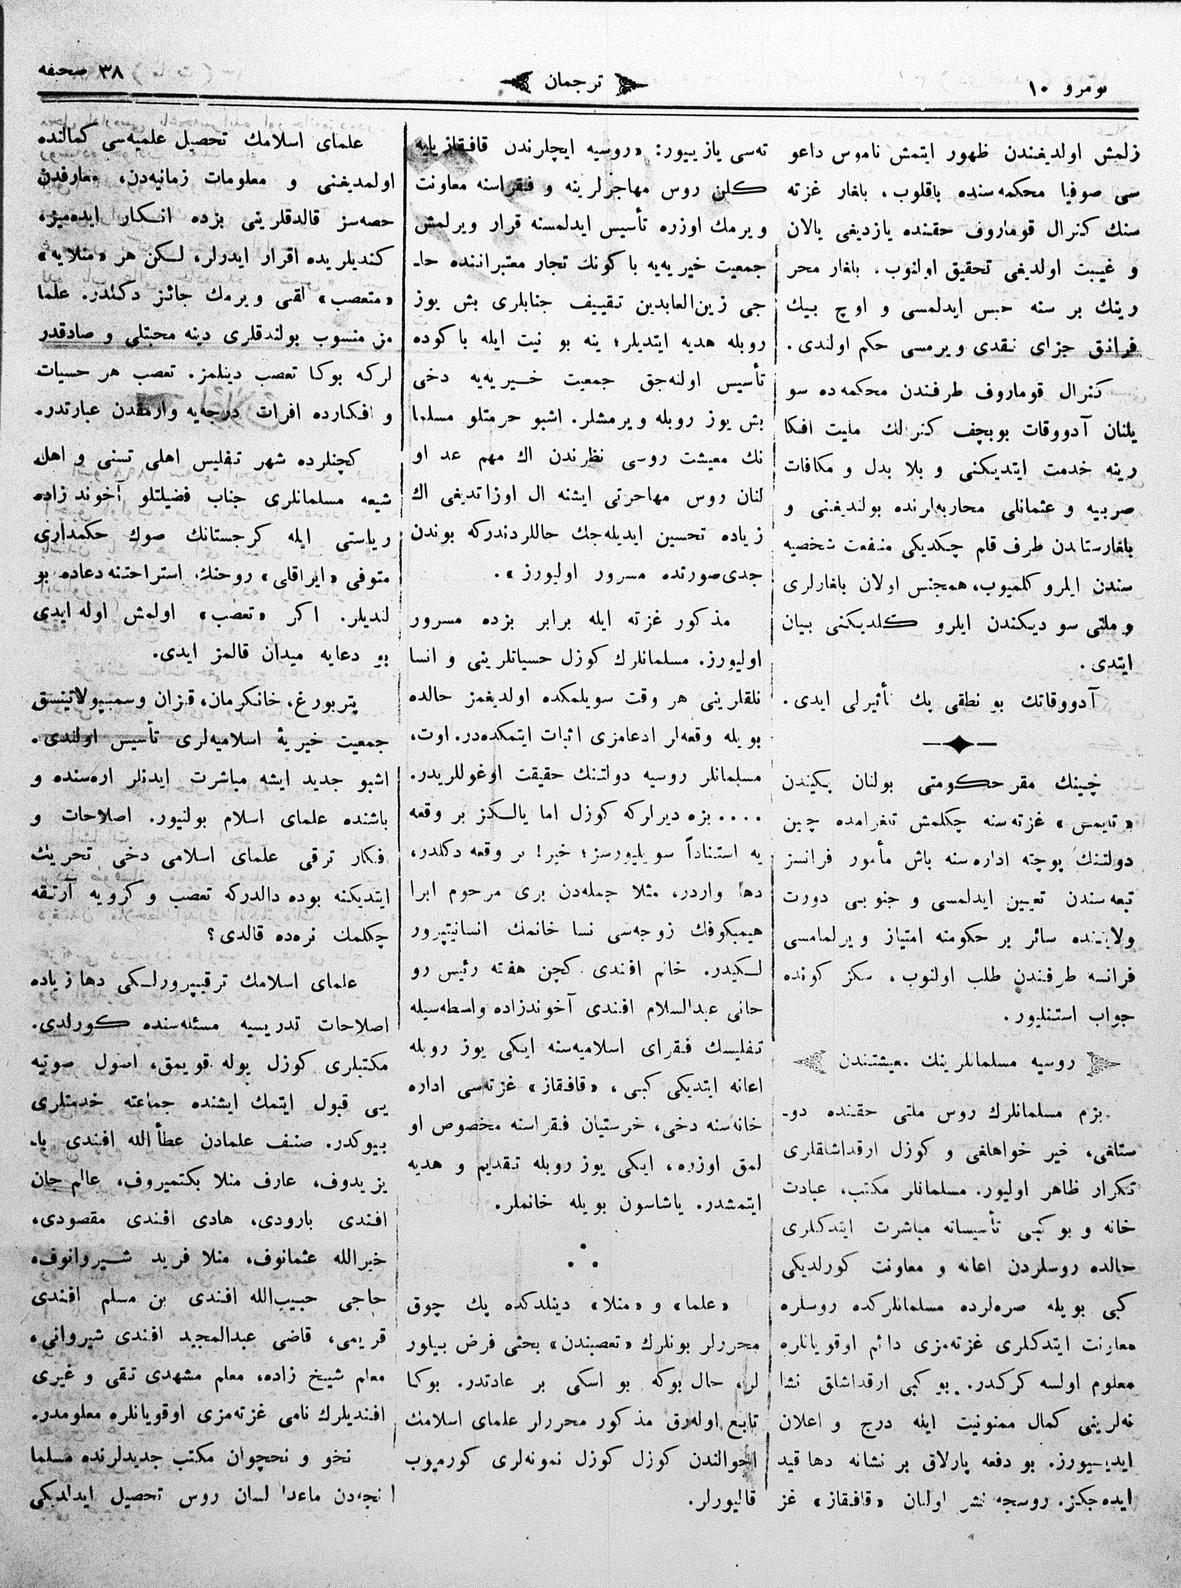 نومرو ١٠
ترجمان
٣٨ صحیفه
زلمش اولدیغندن ظهور ایتمش ناموس داعو
سی صوفیا محکمه‌سنده باقلوب، باغار غزته
سنك کنرال قوماروف حقنده یازدیغی یالان
و غیبت اولدیغی تحقیق اولنوب، بلغار محر
رینك بر سنه حبس ایدلمسی و اوچ بیك
فرانق جزای نقدی ویرمسی حکم اولندی.
کنرال قوماروف طرفندن محکمه‌ده سو
یلنان آدووقات بوبچف کنرالك ملیت افکا
رینه خدمت ایتدیکنی و بلا بدل و مکافات
صربیه و عثمانلی محاربه‌لرنده بولندیغنی و
بلغارستاندن طرف قلم چکدیکی منفعت شخصیه
سندن ایلرو کلمیوب، همجنس اولان بلغارلری
و ملتی سودیکندن ایلرو كلدیکنی بیان
ایتدی.
آدووقاتك بو نطقی پك تأثیرلی ایدی.
چینك مقر حكومتی بولنان پکیندن
«تایمس» غزته‌سنه چکلمش تلغرامده چین
دولتنك پوچته اداره‌سنه باش مأمور فرانسز
تبعه‌سندن تعیین ایدلمسی و جنوبی دورت
ولایتنده سائر بر حکومته امتیاز ویرلمامسی
فرانسه طرفندن طلب اولنوب، سکز کونده
جواب استنلیور.
روسیه مسلمانلرینك معیشتندن
بزم مسلمانلرك روس ملتی حقنده دو-
ستلغی، خیر خواهلغی و کوزل ارقداشلقلری
تکرار ظاهر اولیور. مسلمانلر مکتب، عبادت
خانه و بو کبی تأسیسانه مباشرت ایتدکلری
حالده روسلردن اعانه و معاونت کورلدیکی
کبی بویله صره‌لرده مسلمانلرکده روسلره
معاونت ایتدکلری غزته‌مزی دائم اوقویانلره
معلوم اولسه کرکدر. بو کبی ارقداشلق نشا
نه‌لرینی کمال ممنونیت ایله درج و اعلان
ایدیسیورز. بو دفعه پارلاق بر نشانه دها قید
ایده‌جکز. روسجه نشر اولنان «قافقاز» غز
ته‌سی یازییور: «روسیه ایچلرندن قافقازیایه
كلن روس مهاجرلرینه و فقراسنه معاونت
ویرمك اوزره تأسیس ایدلمسنه قرار ویرلمش
جمعیت خیریه‌یه باکونك تجار معتبراننده حا-
جی زین‌العابدین تقییف جنابلری بش یوز
روبله هدیه ایتدیلر؛ ینه بو نیت ایله باکوده
تأسیس اولنه‌جق جمعیت خیریه‌یه دخی
بش یوز روبله ویرمشلر. اشبو حرمتلو مسلما
نك معیشت روسی نظرندن اك مهم عد او
لنان روس مهاجرتی ایشنه ال اوزاتدیغی اك
زیاده تحسین ایدیله‌جك حاللردندرکه بوندن
جدی صورتده مسرور اولیورز».
مذکور غزته ایله برابر بزده مسرور
اولیورز. مسلمانلرك کوزل حسیاتلرینی و انسا
نلقلرینی هر وقت سویلمکده اولدیغمز حالده
بویله وقعه‌لر ادعامزی اثبات ایتمکده‌در. اوت،
مسلمانلر روسیه دولتنك حقیقت اوغوللریدر.
.... بزه دیرلرکه کوزل اما یالکز بر وقعه
یه استناداً سویلیورسز؛ خیر! بر وقعه دکلدر،
دها واردر، مثلا جمله‌دن بری مرحوم ابرا
هیمبکوفك زوجه‌سی نسا خانمك انسانیتپرور
لكیدر. خانم افندی کچن هفته رئیس رو
حانی عبدالسلام افندی آخوندزاده واسطه‌سیله
تفلیسك فقرای اسلامیه‌سنه ایکی یوز روبله
اعانه ایتدیکی کبی، «قافقاز» غزته‌سی اداره
خانه‌سنه دخی، خرستیان فقراسنه مخصوص او
لمق اوزره، ایکی یوز روبله تقدیم و هدیه
ایتمشدر. یاشاسون بویله خانملر.
«علما» و «منلا» دینلدکده پك چوق
محررلر بونلرك «تعصبندن» بحثی فرض بیلور
لر، حال بوکه بو اسکی بر عادتدر. بوکا
تابع اوله‌رق مذکور محررلر علمای اسلامك
احوالندن کوزل کوزل نمونه‌لری کورمیوب
قالیورلر.
علمای اسلامك تحصیل علمیه‌سی کمالنده
اولمدیغنی و معلومات زمانیه‌دن، معارفدن
حصه‌سز قالدقلرینی بزده انكار ایده‌میز،
کندیلریده اقرار ایدرلر، لكن هر «منلایه»
«متعصب» لقبی ویرمك جائز دکلدر. علما
مز منسوب بولندقلری دینه محبتلی و صادقدر
لرکه بوکا تعصب دینلمز. تعصب هر حسیات
و افکارده افرات درجه‌یه وارمقدن عبارتدر.
کچنلرده شهر تفلیس اهلی تسنی و اهل
شیعه مسلمانلری جناب فضیلتلو آخوند زاده
ریاستی ایله کرجستانك صوك حکمداری
متوفی «ایراقلی» روحنك استراحتنه دعاده بو
لندیلر. اکر «تعصب» اولمش اوله ایدی
بو دعایه میدان قالمز ایدی.
پتربورغ، خانکرمان، قزان و سمیپولاتینسق
جمعیت خیریهٔ اسلامیه‌لری تأسیس اولندی.
اشبو جدید ایشه مباشرت ایدنلر اره‌سنده و
باشنده علمای اسلام بولنیور. اصلاحات و
فکار ترقی علمای اسلامی دخی تحریك
ایتدیکنه بوده دالدرکه تعصب و کرویه آرتقه
چکلمك نره‌ده قالدی؟
علمای اسلامك ترقیپرورلكی دها زیاده
اصلاحات تدریسیه مسئله‌سنده كورلدی.
مکتبلری کوزل یوله قویمق، اصول صوتیه
یی قبول ایتمك ایشنده جماعته خدمتلری
بیوکدر. صنف علمادن عطأالله افندی با-
یزیدوف، عارف منلا بکتمیروف، عالم جان
افندی بارودی، هادی افندی مقصودی،
خیرالله عثمانوف، منلا فرید شیروانوف،
حاجی حبیب‌الله افندی بن مسلم افندی
قریمی، قاضی عبدالمجید افندی شیروانی،
معلم شیخ زاده، معلم مشهدی تقی و غیری
افندیلرك نامی غزته‌مزی اوقویانلره معلومدر.
نخو و نخچوان مکتب جدیدلرنده مسلما
نجه‌دن ماعدا لسان روس تحصیل ایدلدیکی